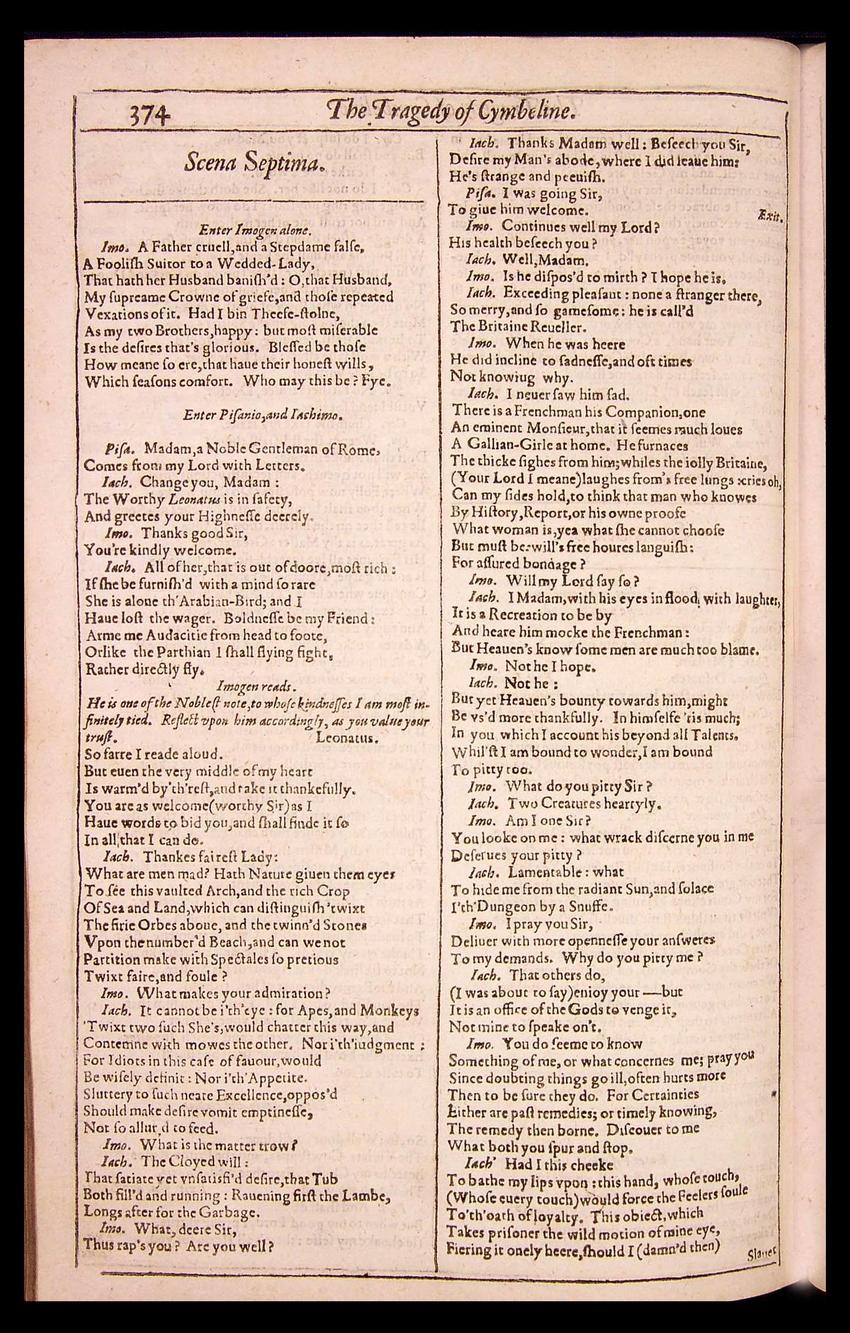 374
The Tragedy of Cymbeline.
Scena Septima.
Enter Imogen alone.
Imo. A Father cruell, and a Stepdame false,
A Foolish Suitor to a Wedded-Lady,
That hath her Husband banish'd: O, that Husband,
My supreame Crowne of griefe, and those repeated
Vexations of it. Had I bin Theefe-stolne,
As my two Brothers, happy: but most miserable
Is the desires that's glorious. Blessed be those
How meane so ere, that haue their honest wills,
Which seasons comfort. Who may this be? Fye.
Enter Pisanio, and Iachimo.
Pisa. Madam, a Noble Gentleman of Rome,
Comes from my Lord with Letters.
Iach. Change you, Madam:
The Worthy Leonatus is in safety,
And greetes your Highnesse deerely.
Imo. Thanks good Sir,
You're kindly welcome.
Iach. All of her, that is out of doore, most rich:
If she be furnish'd with a mind so rare
She is alone th'Arabian-Bird; and I
Haue lost the wager. Boldnesse be my Friend:
Arme me Audacitie from head to foote,
Orlike the Parthian I shall flying fight,
Rather directly fly.
Imogen reads.
He is one of the Noblest note, to whose kindnesses I am most in-
finitely tied. Reflect vpon him accordingly, as you value your
trust. Leonatus.
So farre I reade aloud.
But euen the very middle of my heart
Is warm'd by'th'rest, and take it thankefully.
You are as welcome (worthy Sir) as I
Haue words to bid you, and shall finde it so
In all that I can do.
Iach. Thankes fairest Lady:
What are men mad? Hath Nature giuen them eyes
To see this vaulted Arch, and the rich Crop
Of Sea and Land, which can distinguish 'twixt
The firie Orbes aboue, and the twinn'd Stones
Vpon the number'd Beach, and can we not
Partition make with Spectales so pretious
Twixt faire, and foule?
Imo. What makes your admiration?
Iach. It cannot be i'th'eye: for Apes, and Monkeys
'Twixt two such She's, would chatter this way, and
Contemne with mowes the other. Nor i'th'iudgment:
For Idiots in this case of fauour, would
Be wisely definit: Nor i'th'Appetite.
Sluttery to such neate Excellence, oppos'd
Should make desire vomit emptinesse,
Not so allur'd to feed.
Imo. What is the matter trow?
Iach. The Cloyed will:
That satiate yet vnsatisfi'd desire, that Tub
Both fill'd and running: Rauening first the Lambe,
Longs after for the Garbage.
Imo. What, deere Sir,
Thus rap's you? Are you well?
Iach. Thanks Madam well: Beseech you Sir,
Desire my Man's abode, where I did leaue him:
He's strange and peeuish.
Pisa. I was going Sir,
To giue him welcome. Exit.
Imo. Continues well my Lord?
His health beseech you?
Iach. Well, Madam.
Imo. Is he dispos'd to mirth? I hope he is.
Iach. Exceeding pleasant: none a stranger there,
So merry, and so gamesome: he is call'd
The Britaine Reueller.
Imo. When he was heere
He did incline to sadnesse, and oft times
Not knowiug why.
Iach. I neuer saw him sad.
There is a Frenchman his Companion, one
An eminent Monsieur, that it seemes much loues
A Gallian-Girle at home. He furnaces
The thicke sighes from him; whiles the iolly Britaine,
(Your Lord I meane) laughes from's free lungs: cries oh,
Can my sides hold, to think that man who knowes
By History, Report, or his owne proofe
What woman is, yea what she cannot choose
But must be: will's free houres languish:
For assured bondage?
Imo. Will my Lord say so?
Iach. I Madam, with his eyes in flood, with laughter,
It is a Recreation to be by
And heare him mocke the Frenchman:
But Heauen's know some men are much too blame.
Imo. Not he I hope.
Iach. Not he:
But yet Heauen's bounty towards him, might
Be vs'd more thankfully. In himselfe 'tis much;
In you, which I account his beyond all Talents.
Whil'st I am bound to wonder, I am bound
To pitty too.
Imo. What do you pitty Sir?
Iach. Two Creatures heartyly.
Imo. Am I one Sir?
You looke on me: what wrack discerne you in me
Deserues your pitty?
Iach. Lamentable: what
To hide me from the radiant Sun, and solace
I'th'Dungeon by a Snuffe.
Imo. I pray you Sir,
Deliuer with more opennesse your answeres
To my demands. Why do you pitty me?
Iach. That others do,
(I was about to say) enioy your —— but
It is an office of the Gods to venge it,
Not mine to speake on't.
Imo. You do seeme to know
Something of me, or what concernes me; pray you
Since doubting things go ill, often hurts more
Then to be sure they do. For Certainties
Either are past remedies; or timely knowing,
The remedy then borne. Discouer to me
What both you spur and stop.
Iach' Had I this cheeke
To bathe my lips vpon: this hand, whose touch,
(Whose euery touch) would force the Feelers soule
To'th'oath of loyalty. This obiect, which
Takes prisoner the wild motion of mine eye,
Fiering it onely heere, should I (damn'd then)
Slauer